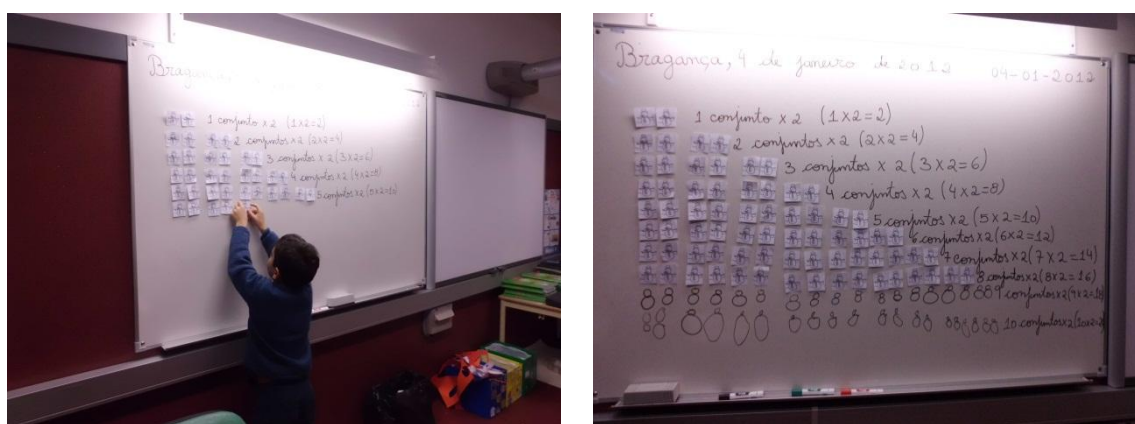 Bragança
1 conjunto x 2 (1x2=2)
2 conjuntos x 2 (2x2=4)
3 conjuntos x 2 (3x2=6)
4 conjuntos x 2 (4x2=8)
5 conjuntos x 2 (5x2=10)
Bragança, 4 de janeiro de 2012 04-01-2012
1 conjunto x 2 (1x2=2)
2 conjuntos x 2 (2x2=4)
3 conjuntos x 2 (3x2=6)
4 conjuntos x 2 (4x2=8)
5 conjuntos x 2 (5x2=10)
6 conjuntos x 2 (6x2=12)
7 conjuntos x 2 (7x2=14)
8 conjuntos x 2 (8x2=16)
9 conjuntos x 2 (9x2=18)
10 conjuntos x 2 (10x2=